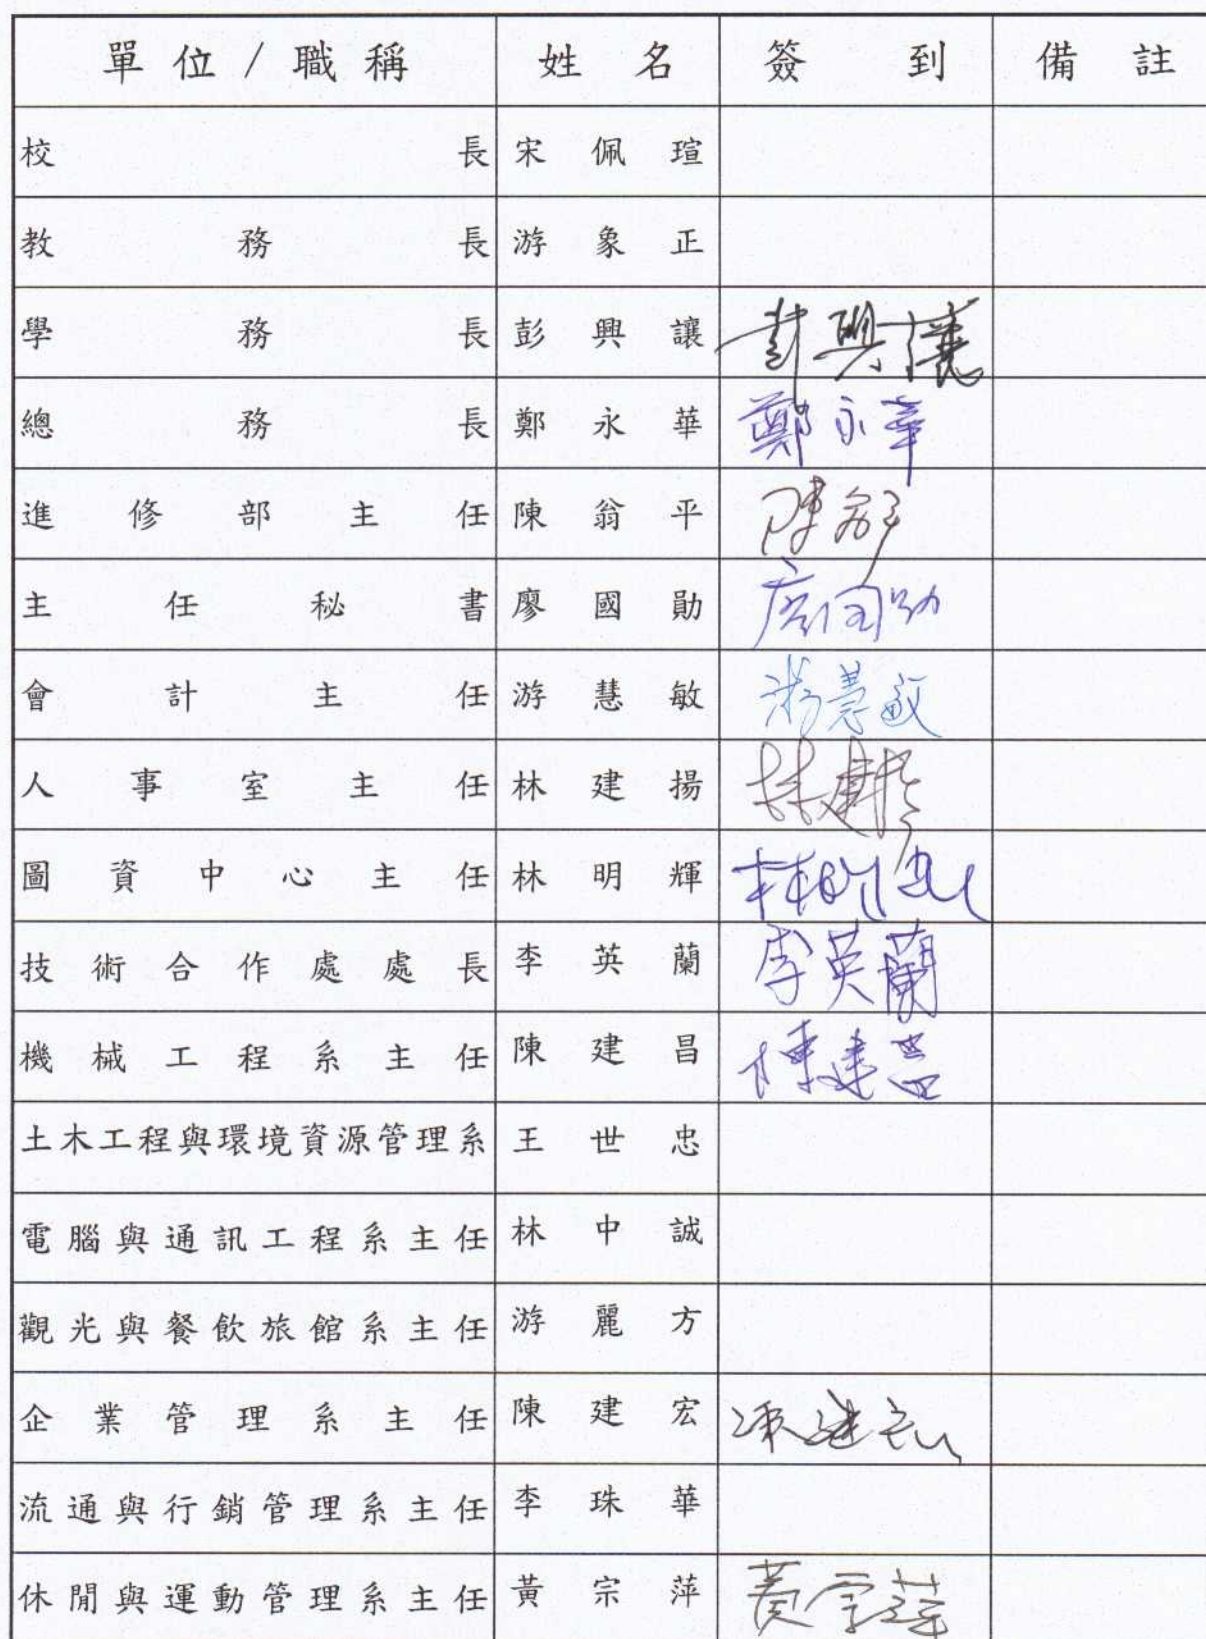 單位/職稱 姓名 簽到 備註
校長 宋佩瑄
教務長 游象正
學務長 彭興讓 彭興讓
總務長 鄭永華 鄭永華
進修部主任 陳翁平 陳翁平
主任秘書 廖國勛 廖國勛
會計主任 游慧敏 游慧敏
人事室主任 林建揚 林建揚
圖資中心主任 林明輝 林明輝
技術合作處處長 李英蘭 李英蘭
機械工程系主任 陳建昌 陳建昌
土木工程與環境資源管理系 王世忠
電腦與通訊工程系主任 林中誠
觀光與餐飲旅館系主任 游麗方
企業管理系主任 陳建宏 陳建宏
流通與行銷管理系主任 李珠華
休閒與運動管理系主任 黃宗萍 黃宗萍